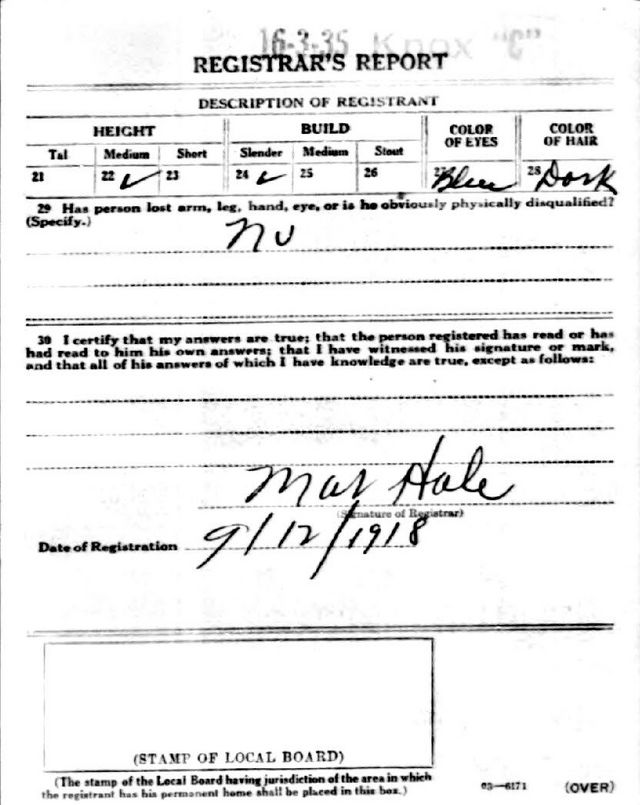 16-3-35 Knox "C"
REGISTRAR'S REPORT
DESCRIPTION OF REGISTRANT
HEIGHT BUILD COLOR OF EYES COLOR OF HAIR
Tal Medium Short Slender Medium Stout
21 22 ✓ 23 24 ✓ 25 26 27 Blue 28 Dark
29 Has person lost arm, leg, hand, eye, or is he obviously physically disqualified?
(Specify.)
No
30 I certify that my answers are true; that the person registered has read or has
had read to him his own answers; that I have witnessed his signature or mark,
and that all of his answers of which I have knowledge are true, except as follows:
Hale
(Signature of Registrar)
Date of Registration 9/12/1918
(STAMP OF LOCAL BOARD)
(The stamp of the Local Board having jurisdiction of the area in which
the registrant has his permanent home shall be placed in this box.)
03—6171 (OVER)